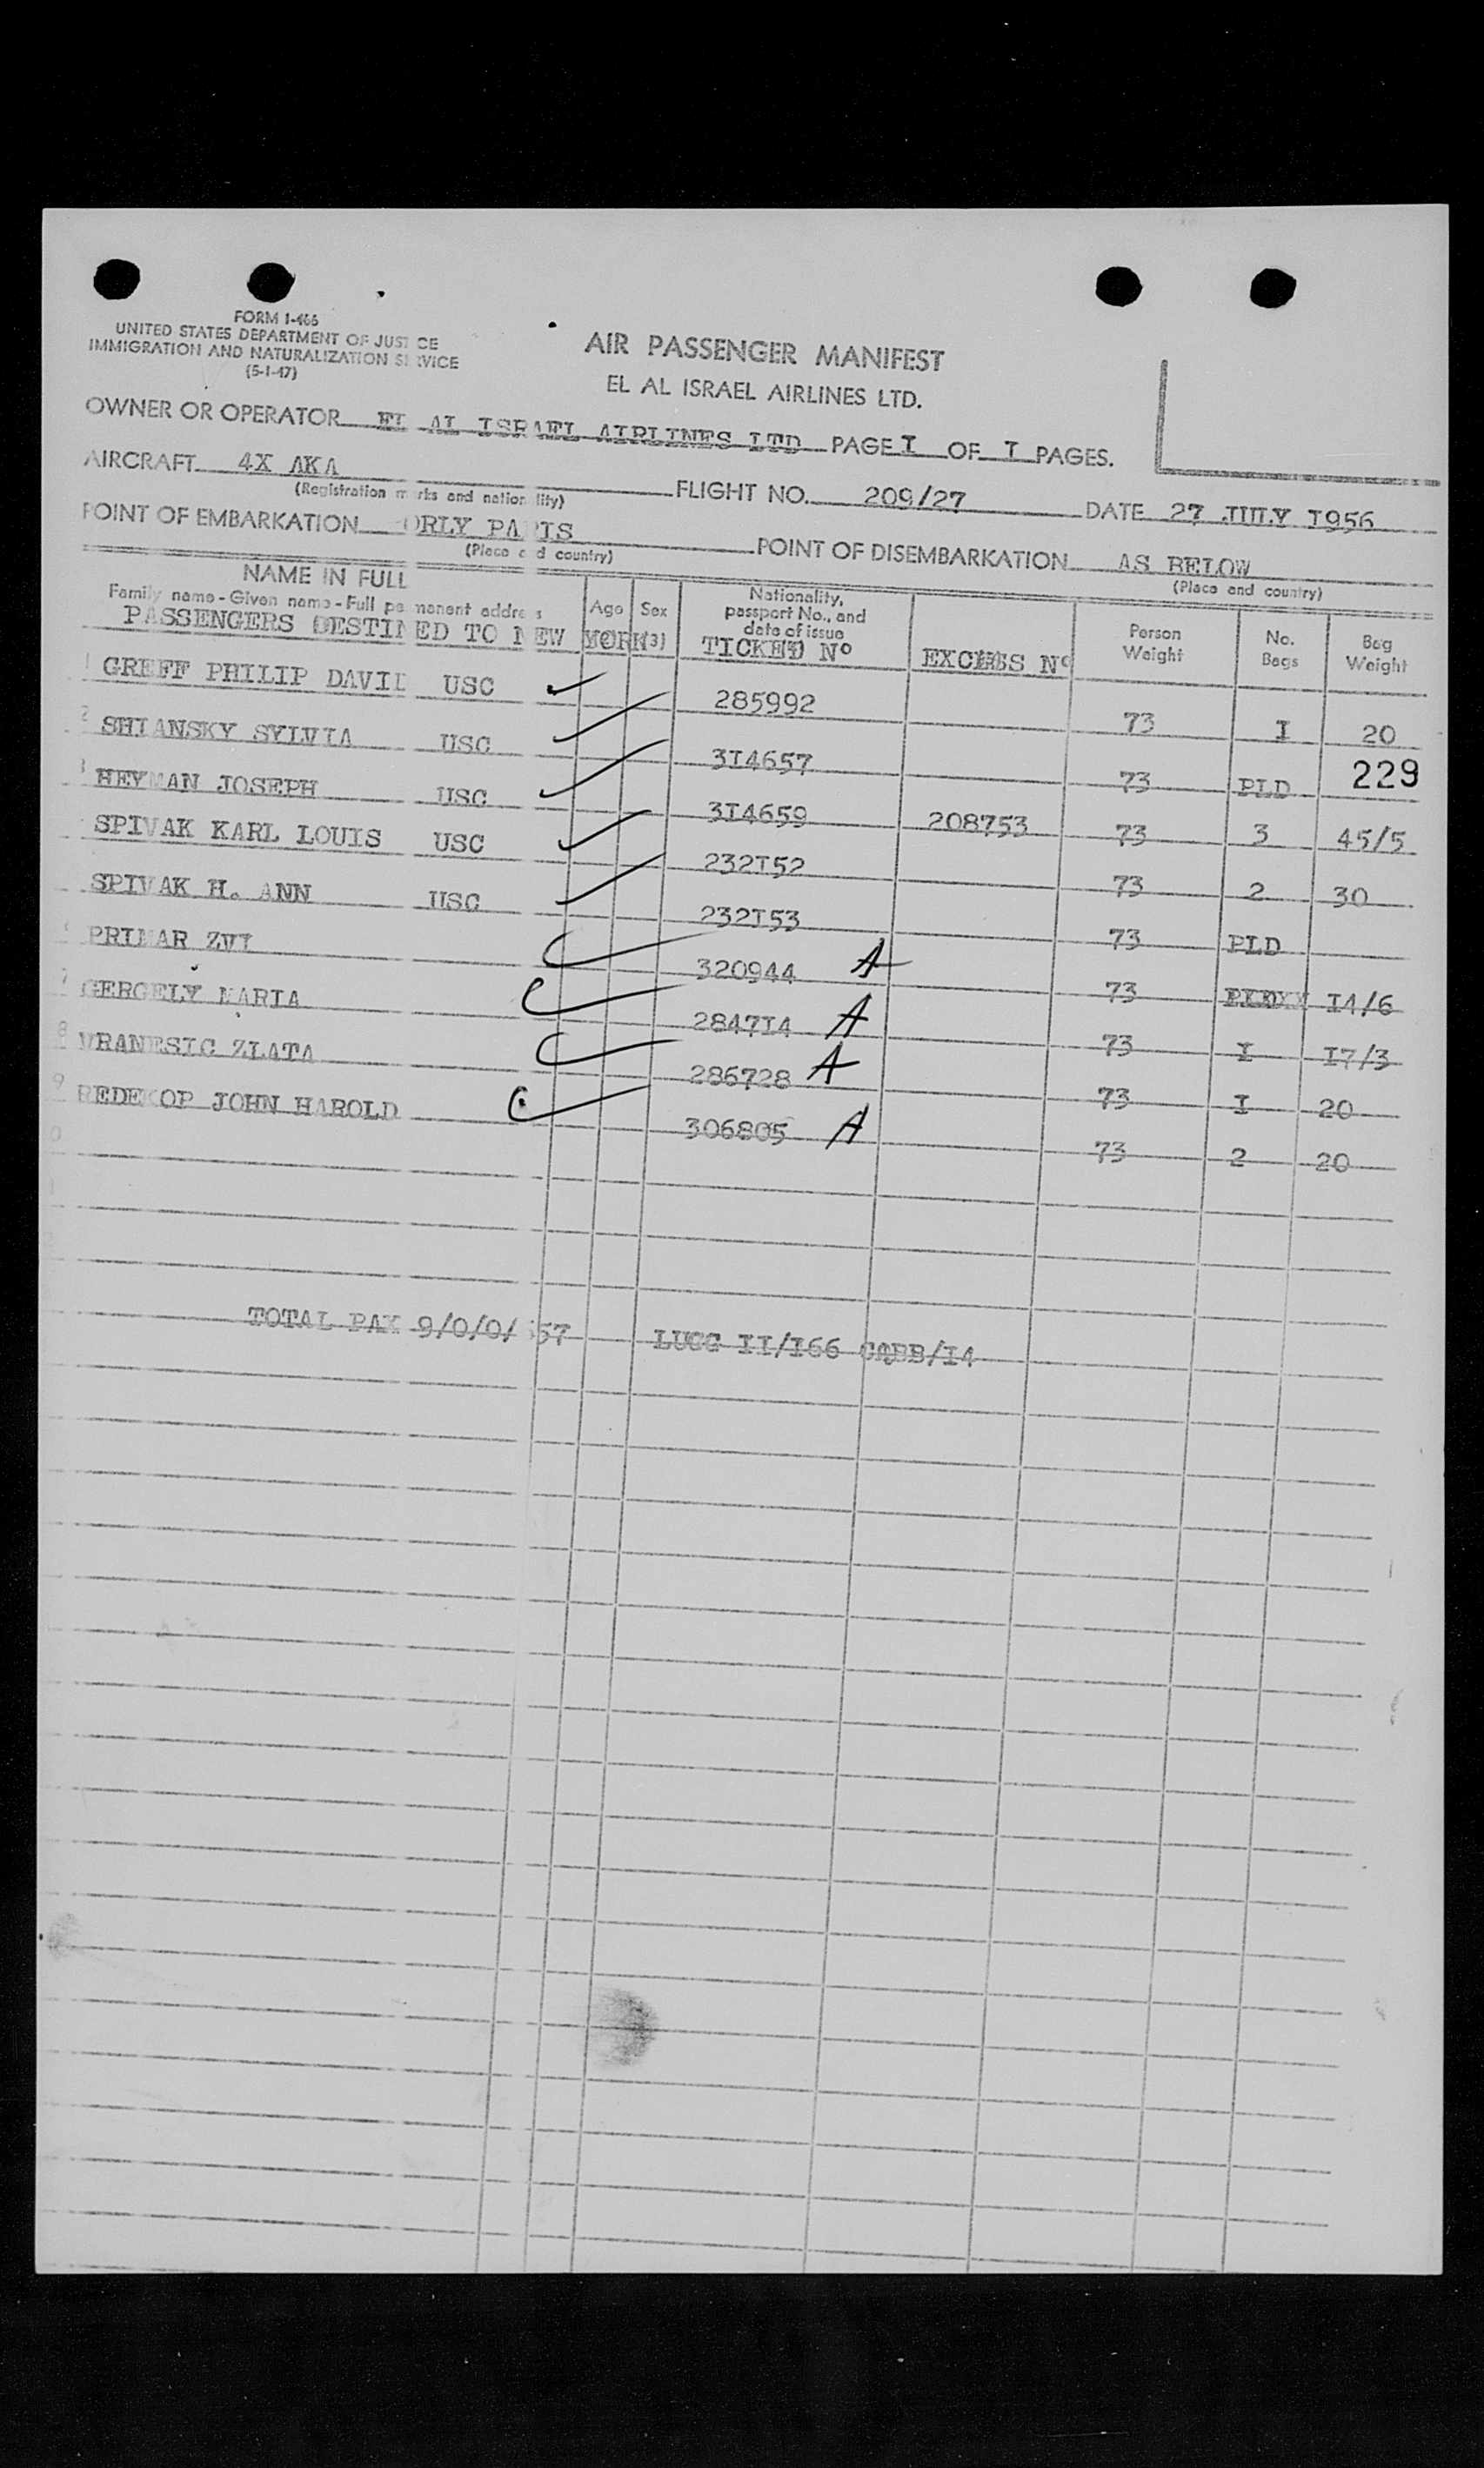 FORM I-466
UNITED STATES DEPARTMENT OF JUSTICE
IMMIGRATION AND NATURALIZATION SERVICE
(5-1-47)
AIR PASSENGER MANIFEST
EL AL ISRAEL AIRLINES LTD.
OWNER OR OPERATOR EL AL ISRAEL AIRLINES LTD PAGE I OF I PAGES.
AIRCRAFT 4X AKA FLIGHT NO. 209/27 DATE 27 JULY I956
(Registration marks and nationality)
POINT OF EMBARKATION ORLY PARIS POINT OF DISEMBARKATION AS BELOW
(Place and country) (Place and country)
NAME IN FULL
Family name - Given name - Full permanent address Age Sex Nationality, passport No., and date of issue Person Weight No. Bags Bag Weight
PASSENGERS DESTINED TO NEW YORK (3) TICKET Nº EXCESS Nº
1 GREFF PHILIP DAVID USC 285992 73 I 20
2 SHIANSKY SYLVIA USC 3I4657 73 PLD 229
3 HEYMAN JOSEPH USC 3I4659 208753 73 3 45/5
SPIVAK KARL LOUIS USC 232I52 73 2 30
SPIVAK H. ANN USC 232I53 73 PLD
PRIMAR ZVI 320944 A 73 I4/6
7 GERGELY MARIA 2847I4 A 73 I I7/3
8 VRANESIC ZLATA 286728 A 73 I 20
9 REDEKOP JOHN HAROLD 306805 A 73 2 20
0
TOTAL PAX 9/0/0/657 LUGG II/I66 CABB/I4